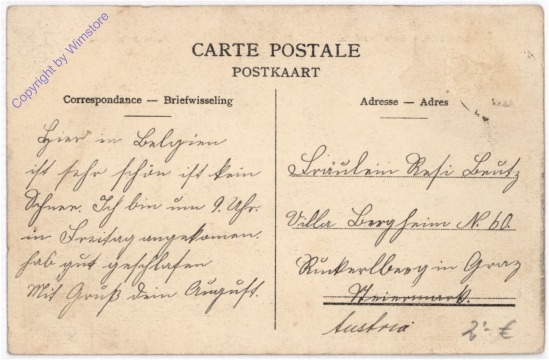 Copyright by Wimstore
CARTE POSTALE
POSTKAART
Correspondance — Briefwisseling
Adresse — Adres
Hier in Belgien
ist sehr schön ist kein
Schnee. Ich bin um 9. Uhr.
in Freitag angekommen.
hab gut geschlafen
Mit Gruß dein August.
Fräulein Resi Beutz
Villa Bergheim N. 60.
Ruckerlberg in Graz
Steiermark.
Austria
2'- €